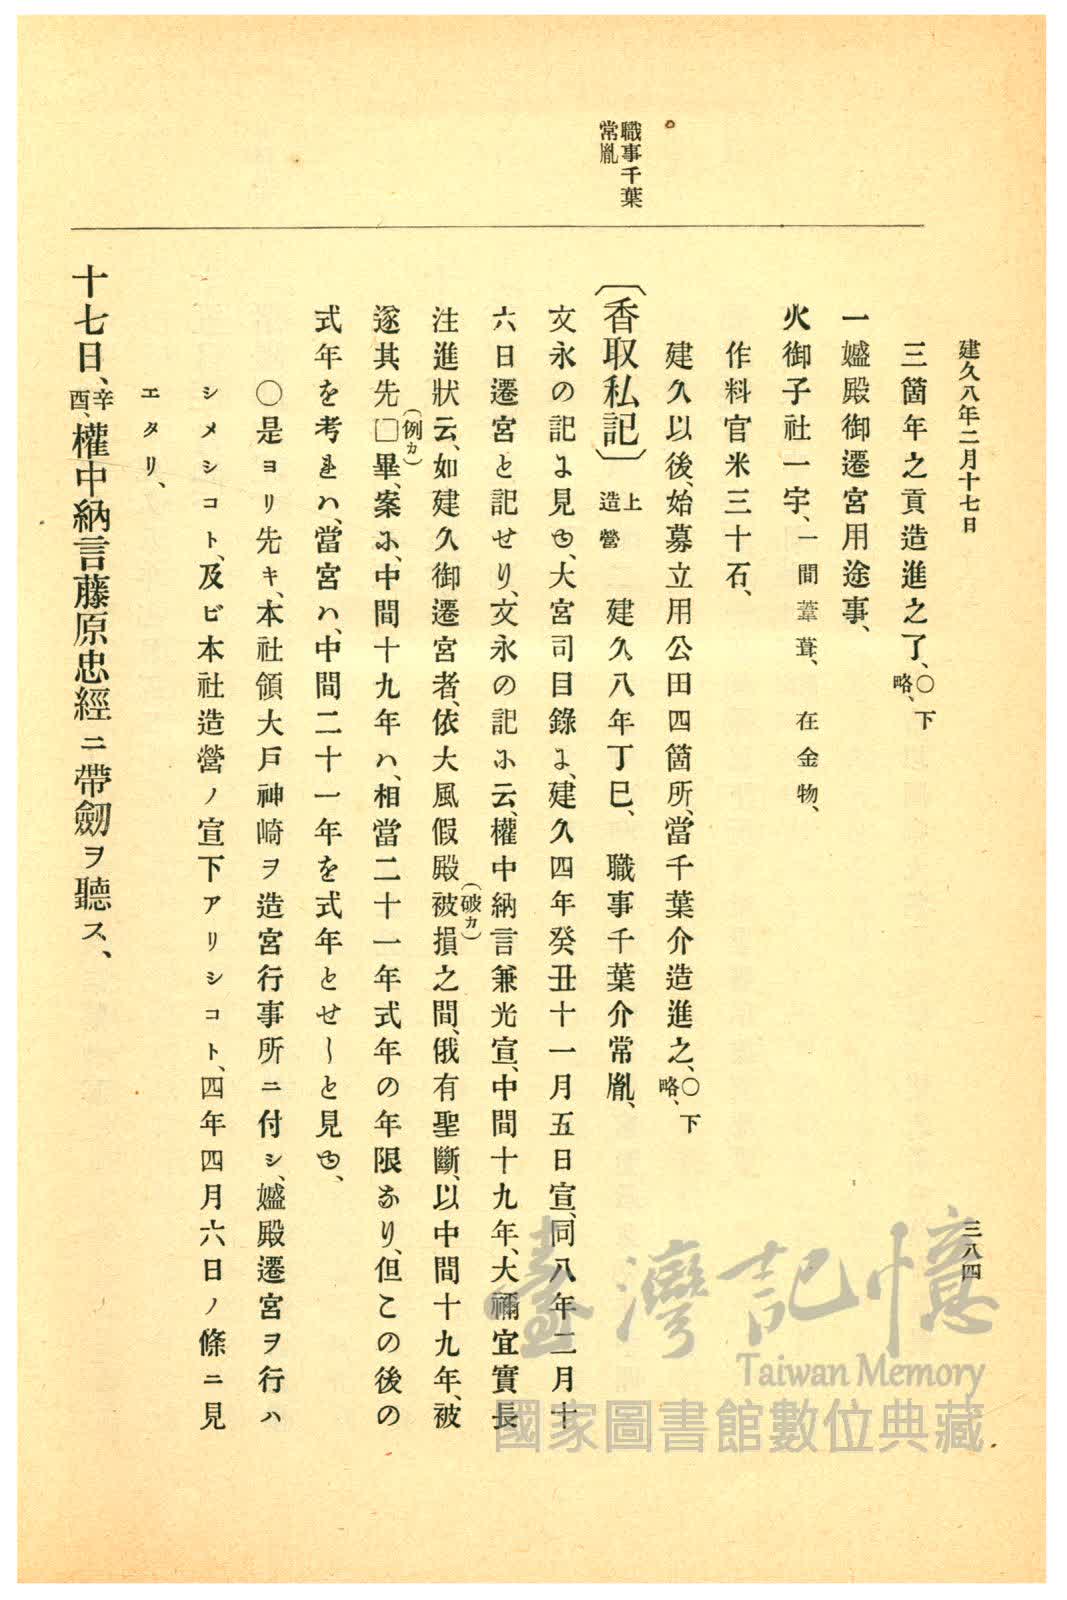 建久八年二月十七日
三八四
職事千葉
常胤
三箇年之貢造進之了、○下略、
一嬧殿御遷宮用途事、
火御子社一宇、一間葦葺、在金物、
作料官米三十石、
建久以後、始募立用公田四箇所、當千葉介造進之、○下略、
〔香取私記〕上造營 建久八年丁巳、職事千葉介常胤、
文永の記に見ゆ、大宮司目錄に、建久四年癸丑十一月五日宣、同八年二月十
六日遷宮と記せり、文永の記に云、權中納言兼光宣、中間十九年、大禰宜實長
注進狀云、如建久御遷宮者、依大風假殿被(破カ)損之間、俄有聖斷、以中間十九年、被
遂其先□(例カ)畢、案に、中間十九年ハ、相當二十一年式年の年限なり、但この後の
式年を考れハ、當宮ハ、中間二十一年を式年とせしと見ゆ、
○是ヨリ先キ、本社領大戶神崎ヲ造宮行事所ニ付シ、嬧殿遷宮ヲ行ハ
シメシコト、及ビ本社造營ノ宣下アリシコト、四年四月六日ノ條ニ見
エタリ、
十七日、辛酉、權中納言藤原忠經ニ帶劒ヲ聽ス、
臺灣記憶
Taiwan Memory
國家圖書館數位典藏